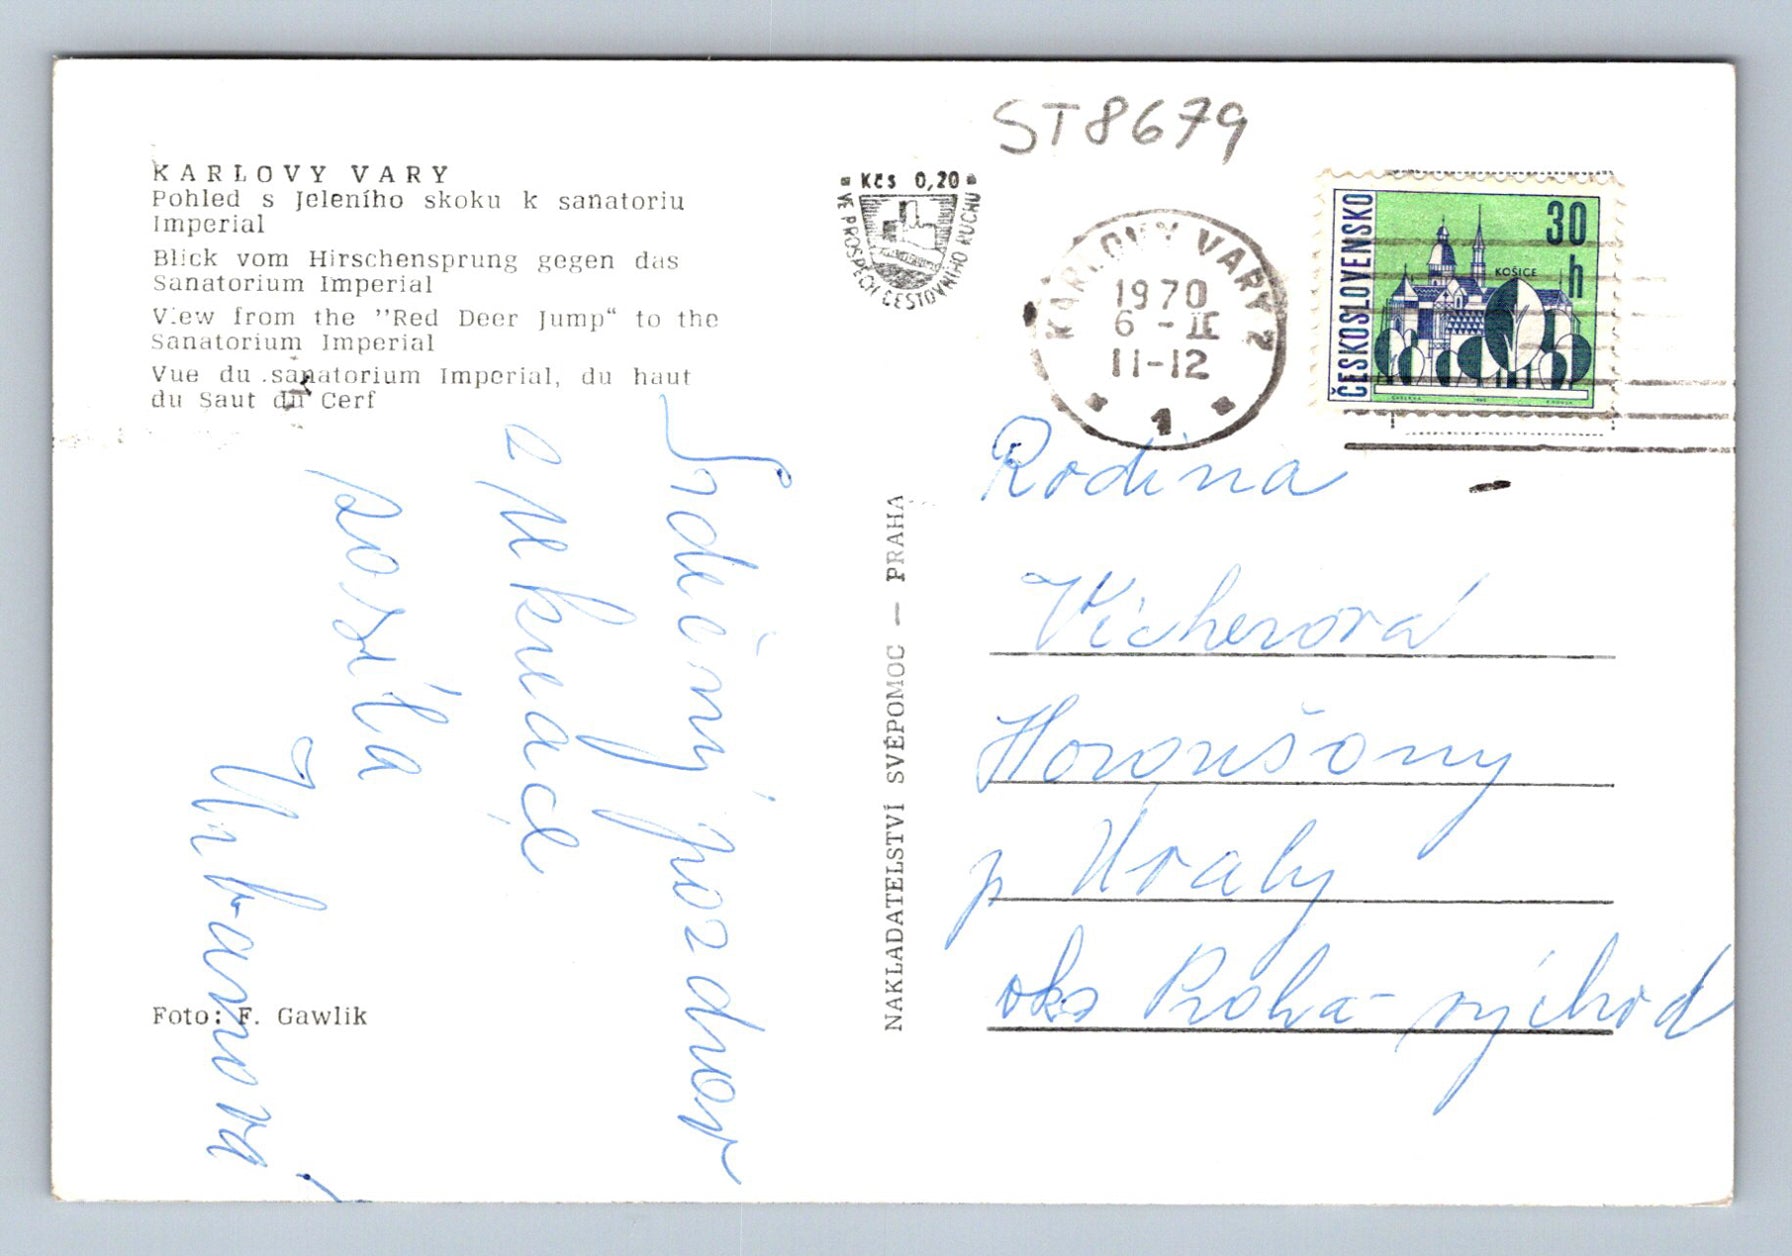 KARLOVY VARY
Pohled s Jeleního skoku k sanatoriu
Imperial
Blick vom Hirschensprung gegen das
Sanatorium Imperial
View from the "Red Deer Jump“ to the
Sanatorium Imperial
Vue du sanatorium Imperial, du haut
du Saut du Cerf
Srdečný pozdrav
z
posílá
Urbanová
Foto: F. Gawlik
NAKLADATELSTVÍ SVÉPOMOC — PRAHA
Kčs 0,20
VE PROSPĚCH CESTOVNÍHO RUCHU
ST8679
KARLOVY VARY 2
1970
6 -II
11-12
1
ČESKOSLOVENSKO
30
h
KOŠICE
Rodina
Vicherová
Horoušany
p Úvaly
okr Praha-východ